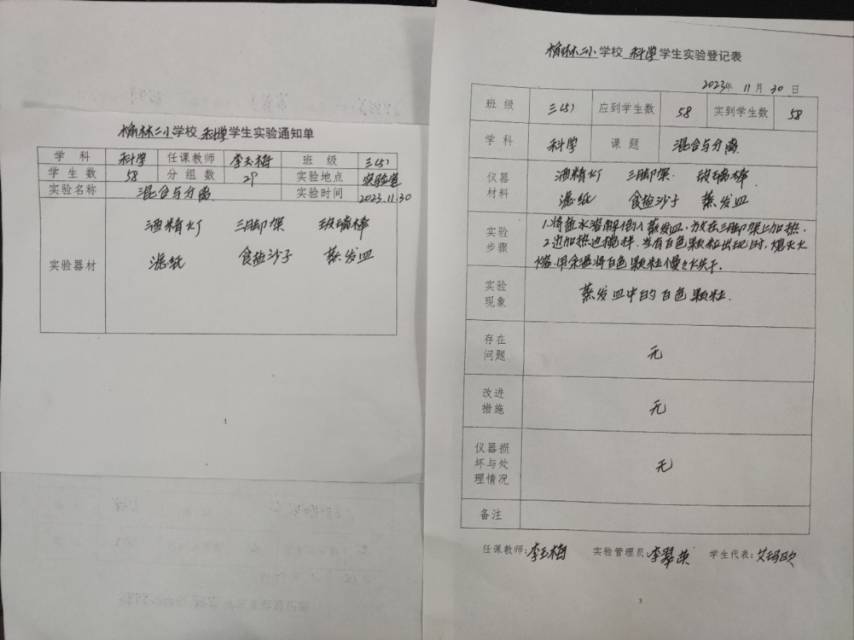 榆林二小学校 科学学生实验通知单
学 科 科学 任课教师 李玉梅 班 级 三(5)
学 生 数 58 分 组 数 29 实验地点 实验室
实验名称 混合与分离 实验时间 2023.11.30
酒精灯 三脚架 玻璃棒
实验器材
滤纸 食盐沙子 蒸发皿
1
榆林二小学校 科学学生实验登记表
2023年 11月 30日
班 级 三(5) 应到学生数 58 实到学生数 58
学 科 科学 课 题 混合与分离
仪器 酒精灯 三脚架 玻璃棒
材料 滤纸 食盐沙子 蒸发皿
实验 1.将盐水溶解倒入蒸发皿,放在三脚架上加热.
步骤 2.边加热边搅拌.当有白色颗粒出现时,熄灭火
焰.用余温将白色颗粒慢慢烘干.
实验
现象 蒸发皿中的白色颗粒.
存在
问题 无
改进
措施 无
仪器损
坏与处 无
理情况
备注
任课教师:李玉梅 实验管理员:李翠英 学生代表:
1